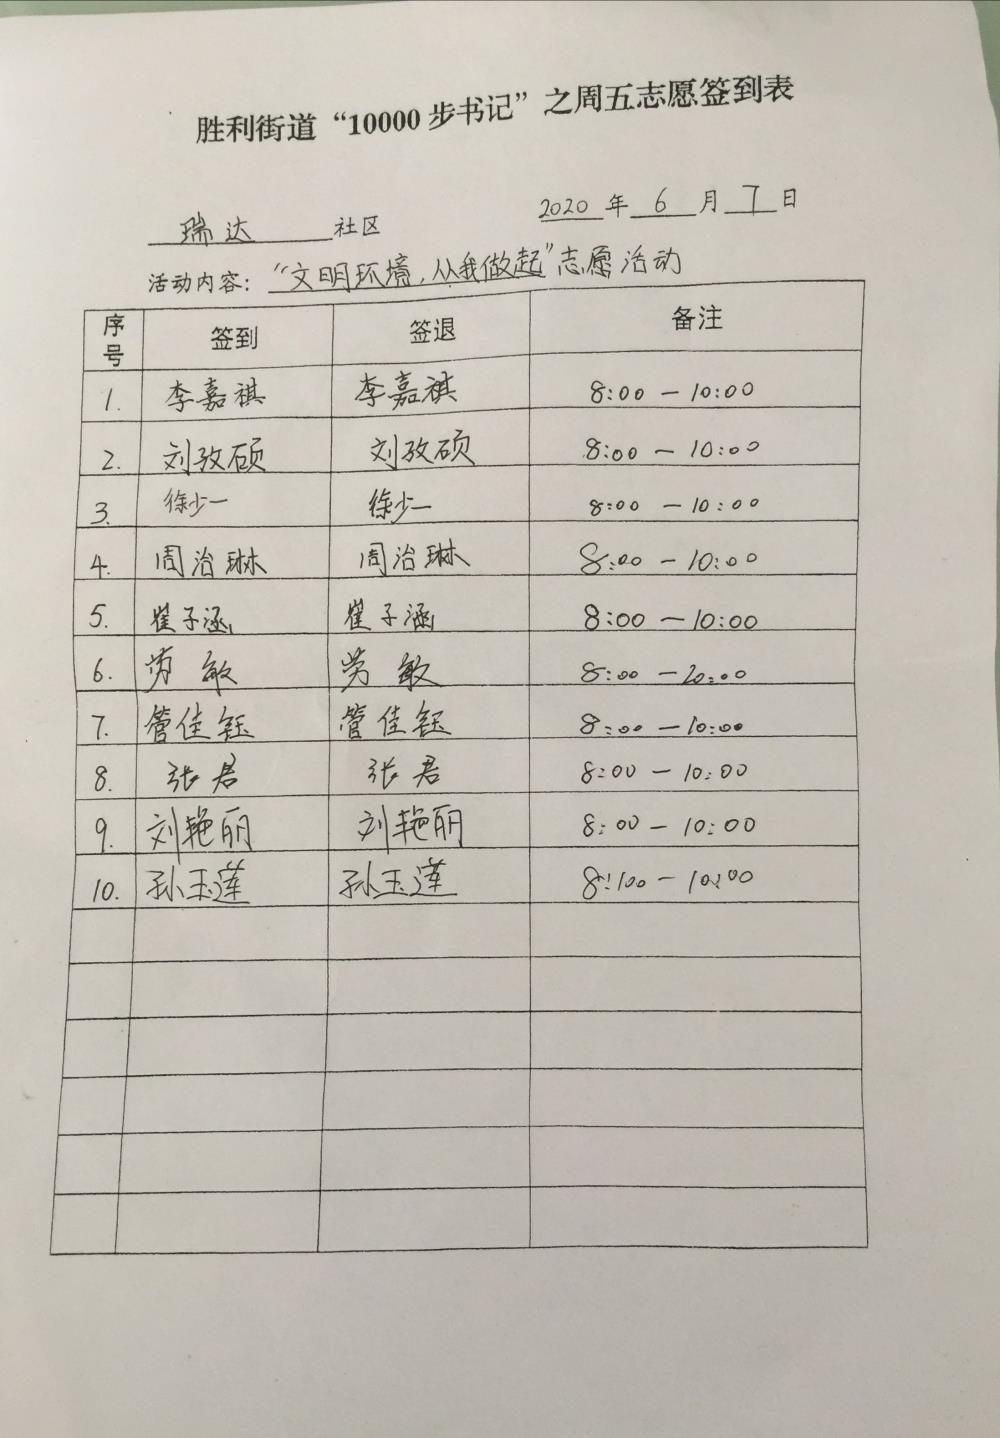 胜利街道“10000步书记”之周五志愿签到表
瑞达 社区 2020年6月7日
活动内容：“文明环境，从我做起”志愿活动
序号 签到 签退 备注
1. 李嘉祺 李嘉祺 8:00 — 10:00
2. 刘孜硕 刘孜硕 8:00 — 10:00
3. 徐少一 徐少一 8:00 — 10:00
4. 周治琳 周治琳 8:00 — 10:00
5. 崔子涵 崔子涵 8:00 — 10:00
6. 劳敏 劳敏 8:00 — 20:00
7. 管佳钰 管佳钰 8:00 — 10:00
8. 张君 张君 8:00 — 10:00
9. 刘艳丽 刘艳丽 8:00 — 10:00
10. 孙玉莲 孙玉莲 8:100 — 10:00